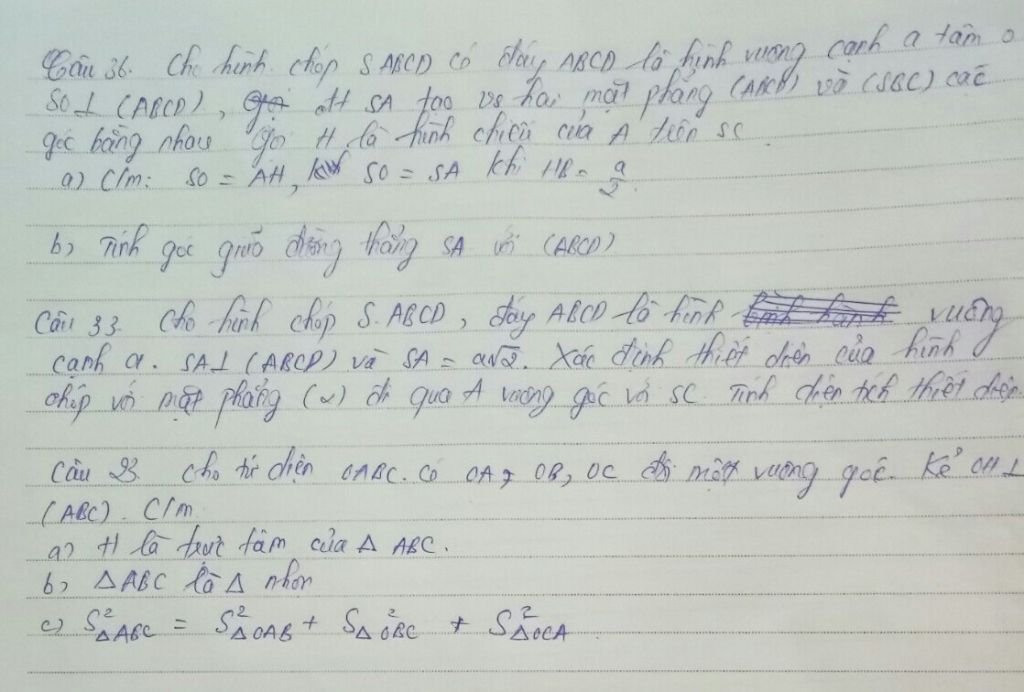 Câu 36. Cho hình chóp S ABCD có đáy ABCD là hình vuông cạnh a tâm O
SO⊥ (ABCD), SA tạo vs hai mặt phẳng (ABCD) và (SBC) các
góc bằng nhau Gọi H là hình chiếu của A trên SC.
a) C/m: SO = AH, SO = SA khi HB = a/2.
b) Tính góc giữa đường thẳng SA với (ABCD)
Câu 33. Cho hình chóp S.ABCD, đáy ABCD là hình vuông
cạnh a. SA⊥ (ABCD) và SA = a√2. Xác định thiết diện của hình
chóp với mặt phẳng (α) đi qua A vuông góc với SC. Tính diện tích thiết diện.
Câu 23. Cho tứ diện OABC. Có OA, OB, OC đôi một vuông góc. Kẻ OH⊥
(ABC). C/m
a) H là trực tâm của Δ ABC.
b) Δ ABC là Δ nhọn
c) S²ΔABC = S²ΔOAB + S²ΔOBC + S²ΔOCA